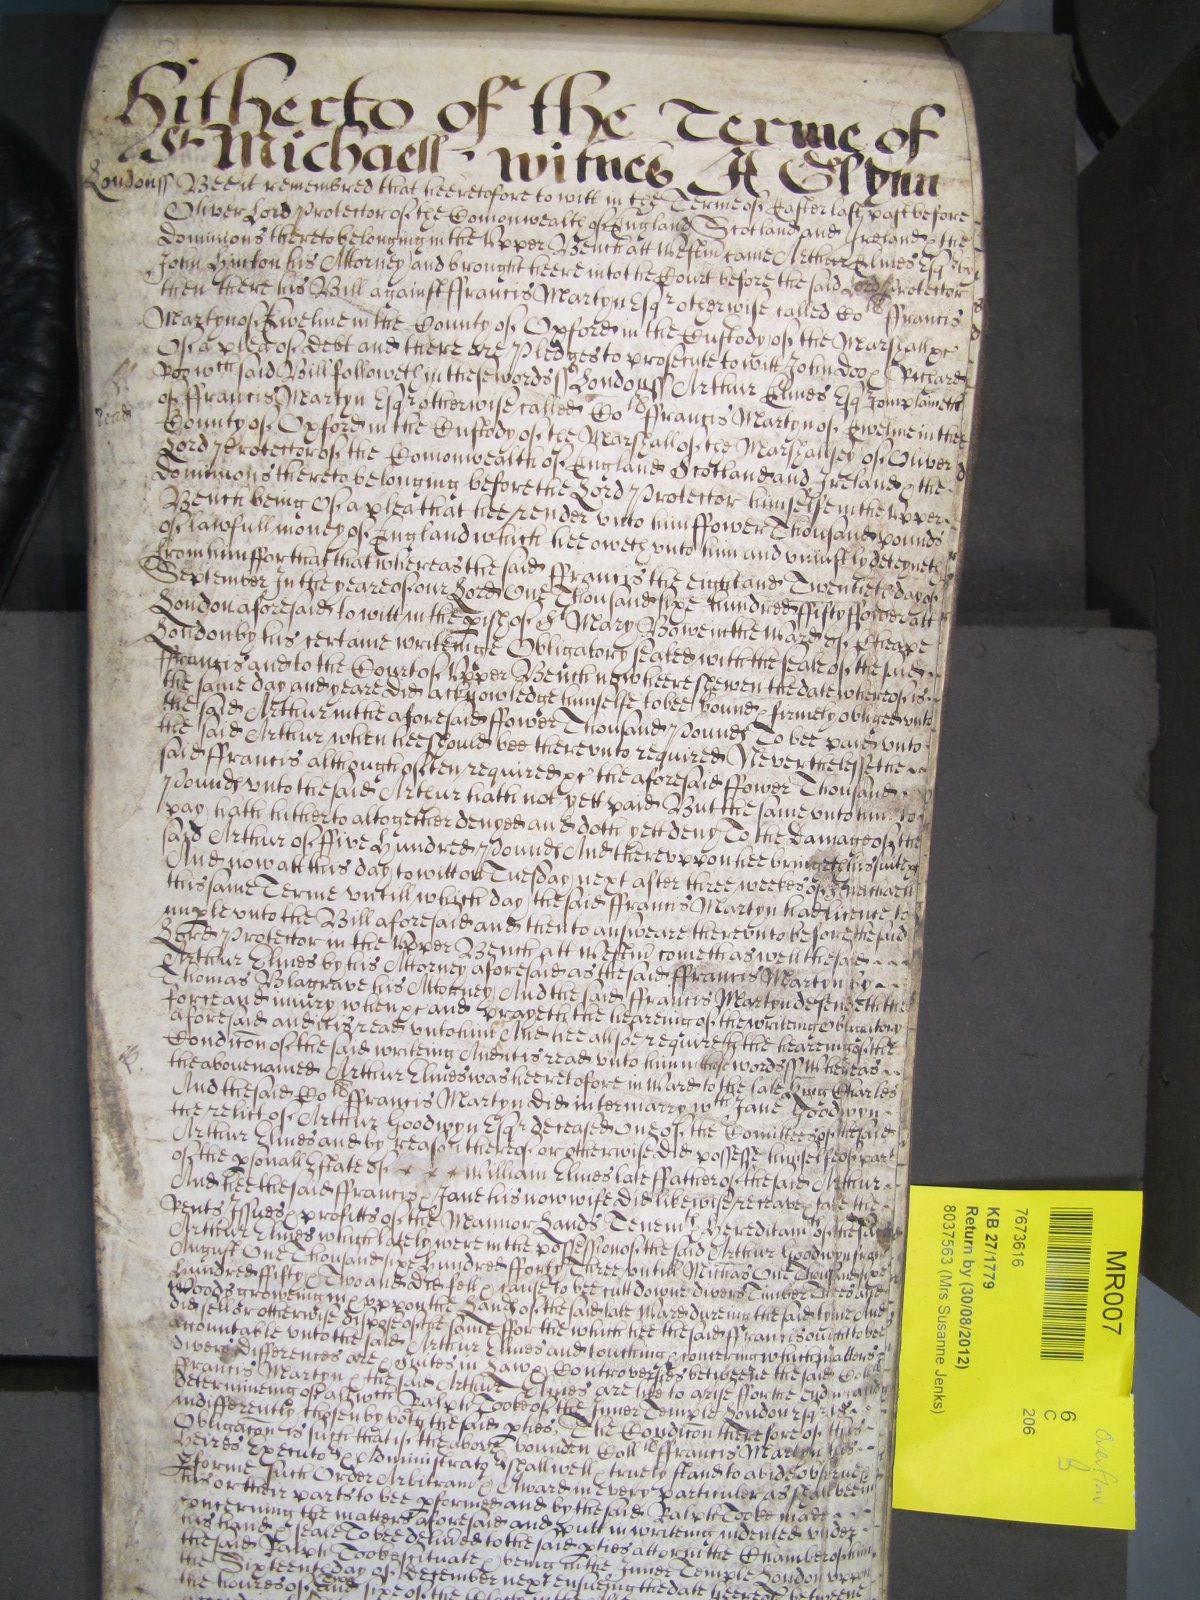 Hitherto of the Terme of
St Michaell witnes Jt Glynn
Londonss Bee it remembred that heeretofore to witt in the Terme of Easter last past before
Oliver Lord Protector of the Comonwealth of England Scotland and Ireland & the
Dominions thereto belonging in the Upper Bench att Westm came Arthur Elmes Esqr by
John Hinton his Attorney and brought heere into the Court before the said Lord Protector
then there his Bill against ffrancis Martyn Esqr otherwise called Collll ffrancis
Martyn of Ewelme in the County of Oxford in the Custody of the Marshall &c
Of a plea of Debt and there are Pledges to prosecute to witt John Doo & Richard
Roo wch said Bill followeth in these words ss Londonss Arthur Elmes Esqr complaineth
of ffrancis Martyn Esqr otherwise called Collll ffrancis Martyn of Ewelme in the
County of Oxford in the Custody of the Marshall of the Marshalsey of Oliver
Lord Protector of the Comonwealth of England Scotland and Ireland & the
Dominions thereto belonging before the Lord Protector himselfe in the Upper
Bench being Of a plea that hee render unto him ffower Thousand pounds
of lawfull money of England which hee oweth unto him and uniustly deteyneth
from him ffor that that whereas the said ffrancis the eight and Twentieth day of
September In the yeare of our Lord One Thousand sixe hundred ffifty ffower att
London aforesaid to witt in the pish of St Mary Bowe in the Ward of Cheape
London by his certaine writeinge Obligatory sealed with the seale of the said
ffrancis and to the Court of Upper Bench now heere shewen the date whereof is
the same day and yeare did acknowledge himselfe to bee bound & firmely obliged unto
the said Arthur in the aforesaid ffower Thousand Pounds To bee paid unto
the said Arthur when hee should bee thereunto required Neverthelesse the
said ffrancis although often required &c the aforesaid ffower Thousand
Pounds unto the said Arthur hath not yett paid But the same unto him to
pay hath hitherto altogether denyed and doth yett deny To the Damage of the
said Arthur of ffive Hundred Pounds And thereuppon hee bringeth his suite &c
And now att this day to witt on Tuesday next after three weekes of St Michaell
this same Terme untill which day the said ffrancis Martyn had licence to
imple unto the Bill aforesaid and then to answeare thereunto before the said
Lord Protector in the Upper Bench att Westm cometh as well the said
Arthur Elmes by his Attorney aforesaid as the said ffrancis Martyn by
Thomas Blagrave his Attorney And the said ffrancis Martyn defendeth the
force and iniury when &c and prayeth the heareing of the writeing Obligatory
aforesaid and it is read unto him And hee alsoe requireth the heareing of the
Condicon of the said writeing And it is read unto him in these words ss Whereas
the abovenamed Arthur Elmes was heeretofore in Ward to the late King Charles
And the said Collll ffrancis Martyn did intermarry wth Jane Goodwyn
the relict of Arthur Goodwyn Esqr deceased One of the Comittees of the said
Arthur Elmes and by reason thereof or otherwise did possesse himselfe of part
of the psonall Estate of William Elmes late ffather of the said Arthur
And hee the said ffrancis & Jane his now wife did likewise receave & take the
Rents Issues & profitts of the Mannor Lands Tenemts & Hereditamts of the said
Arthur Elmes which lately were in the possession of the said Arthur Goodwyn from
August One Thousand sixe hundred fforty Three untill Michas One Thousand sixe
hundred ffifty & Two and did fell & cause to bee cutt downe divers Timber Trees and
Woods groweing in & uppon the Lands of the said late Ward dureing the said tyme And
did sell or otherwise dispose of the same ffor the which hee the said ffrancis ought to bee
accountable unto the said Arthur Elmes and touching & concerning which matters
divers differences are & Suites in Law & Controversies betweene the said Collll
ffrancis Martyn & the said Arthur Elmes are like to arise ffor the end and
determineing of all wch Ralph Tooke of the Inner Temple London Esqr is
indifferently chosen by both the said pties The Condicon therefore of this
Obligacon is such that if the above bounden Collll ffrancis Martyn his
heires Executors & Administrators shall well & truely stand to abide observe &
pforme such Order Arbitramt & Award in every particuler as shall bee in
his or their parts to bee pformed and by the said Ralph Tooke made
concerning the matters aforesaid and putt in writeing indented under
his hand & seale To bee delivered to the said pties att or in the Chamber of him
the said Ralph Tooke scituate & being in the Inner Temple London uppon
the Sixteenth day of December next ensueing the date heereof betweene
the houres of and sixe of the
MR007
7673616
KB 27/1779
Return by (30/08/2012)
8037563 (Mrs Susanne Jenks)
6
C
206